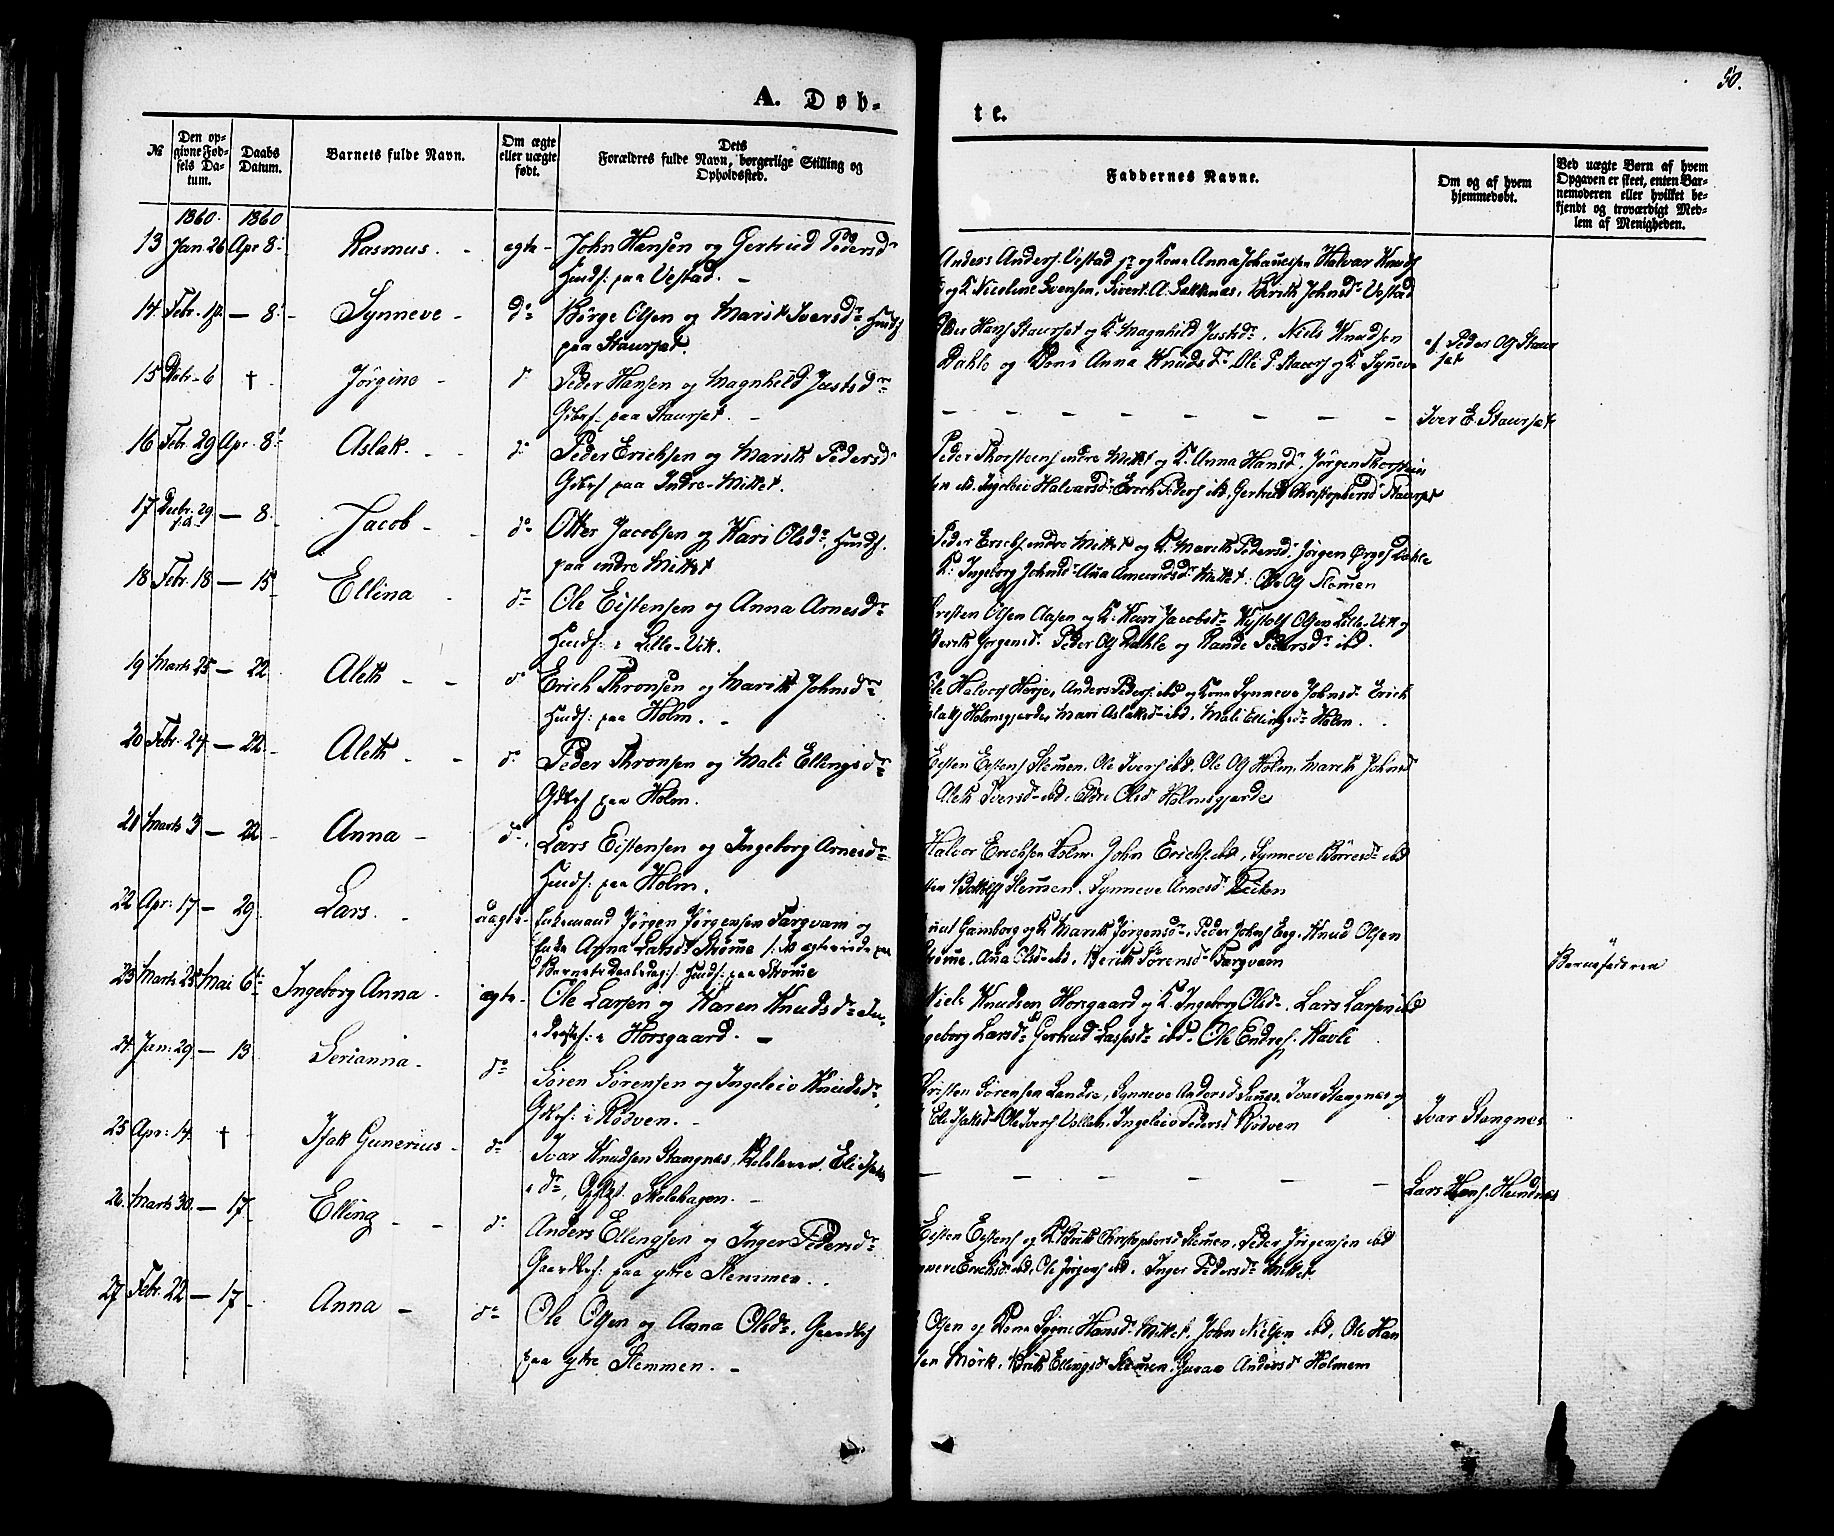 50.
A. Døb-
te.
№
Den op-
givne Fød-
sels Da-
tum.
Daabs
Datum.
Barnets fulde Navn.
Om ægte
eller uægte
født.
Dets
Forældres fulde Navn, borgerlige Stilling og
Opholdssted.
Faddernes Navne.
Om og af hvem
hjemmedøbt.
Ved uægte Børn af hvem
Opgaven er skeet, enten Bar-
nemoderen eller hvilket be-
kjendt og troværdigt Med-
lem af Menigheden.
1860. 1860
13 Jan 26 Apr 8. Rasmus. ægte John Hansen og Gertrud Pedersd
Husds: paa Vestad.
Anders Anders: Vestad og Kona Anna Johannessen Halvar Knuds
og K Nicoline Svensen, Sivert A. Johnsd Vestad
14 Febr. 14 — 8 Synneve do Børge Olsen og Marit Iversdr Husds
paa Staurset.
Peder Hans Staurset og K. Magnhild Justsdr. Niels Knudsen
Dahle og Kona Anna Knudsdr. Ole P. Staurs og K. Synneve
af Peder Staur
set
15 Debr 6 † Jørgine d Peder Hansen og Magnhild Justsdr
Gbrs. paa Staurset.
— — — — — — —
Iver E. Staurset
16 Febr. 29 Apr. 8 Aslak. d Peder Erichsen og Marith Pedersd
Gbrs paa Indre-Mittet.
Peder Thorsteens indre Mittet og K. Anna Hansd. Jørgen Thorstein
sen ibd. Ingeleiv Halvarsd. Erich Peders ibd, Gertrud Christophersd Staurset
17 Decbr. 29 — 8. Jacob do Otter Jacobsen og Kari Olsdr, Husds.
paa indre Mittet
Peder Erichs indre Mittet og K. Marith Pedersd. Jørgen Dahle
K. Ingeborg Johnsd Ana Amundsd Mittet. Ole Stemen
18 Febr. 18 — 15 Ellina do Ole Eistensen og Anna Arnesdr
Husds: i Lille-Vik.
Kristen Olsen og K. Kari Jacobsd Olsen Lille-Vik og
Berith Jørgensd. Peder Dahle og Rande Pedersdr ibd.
19 Marts 25 — 22 Aleth d Erich Thronsen og Marith Johnsdr
Husds: paa Holm.
Ole Halvors Horje, Anders Peders ibd og Kona Synneve Johnsd. Erich
Aslaks Holmsgjerde, Mari Aslaksd ibd, Mali Ellingsdr Holm.
20 Febr. 24. — 22 Aleth d. Peder Thronsen og Mali Ellingsdr
Gdbrs paa Holm.
Eisten Eistens Stemen, Ole Ivers ibd. Ole Holm. Marith Johnsd
Aleth Iversd ibd. Olsd Holmsgjerde
21 Marts 3 — 22 Anna d. Lars Eistensen og Ingeborg Arnesdr
Husds: paa Holm.
Halvor Erichsen Holm. John Erichs ibd, Synneve Børresdr ibd
Stemen. Synneve Arnesd
22 Apr: 17 — 29 Lars. uægte Enkemand Jørgen Jørgensen Torgvam og
Enke Anna Larsd Strøme
Barnets Daabsdag: Husds: paa Strøme
Knud Gamborg og K Marith Jørgensdr, Peder Johns Eeg. Knud Olsen
Strøme. Ana Olsd ibd. Berith Sørensd Torgvam
Barnefaderen
23 Marts 25 Mai 6te Ingeborg Anna ægte Ole Larsen og Karen Knudsdr In-
derst: i Horsgaard.
Niels Knudsen Horsgaard og K. Ingeborg Olsd. Lars Larsen ibd
Ingeborg Larsdr Gertrud ibd. Ole Endres. Havle
24 Jan: 29 — 13 Serianna. do Søren Sørensen og Ingeleiv Knudsdr,
Gbrs: i Rødven.
Kristen Sørensen Landre, Synneve Andersd Ivar Stangnes og
Eli Isaksd Ole Ivers Vollen. Ingeleiv Pedersd Rødven
Ivar Stangnes
25 Apr: 14 † Isak Gunerius do Ivar Knudsen Stangnes, Skolelærer, Eli Isaks
dr, Skolehagen.
— — — — — — —
Lars Hans. Hundnes
26 Marts 30. — 17 Elling d. Anders Ellingsen og Inger Pedersdr
Gaardbrs. paa ytre Stemmen.
Eisten Eistens og K Berith Christophersd Stemen, Peder Jørgensen ibd
Synneve Erichsd ibd, Ole Jørgens ibd. Inger Pedersdr Mittet
27 Febr. 22 — 17 Anna do Ole Olsen og Anna Olsdr. Gaardbrs
paa ytre Stemmen.
Olsen og Kona Hansd Mittet, John Nielsen ibd, Ole Han
sen Mørk, Berith Ellingsd Stemen, Andersd Holmem